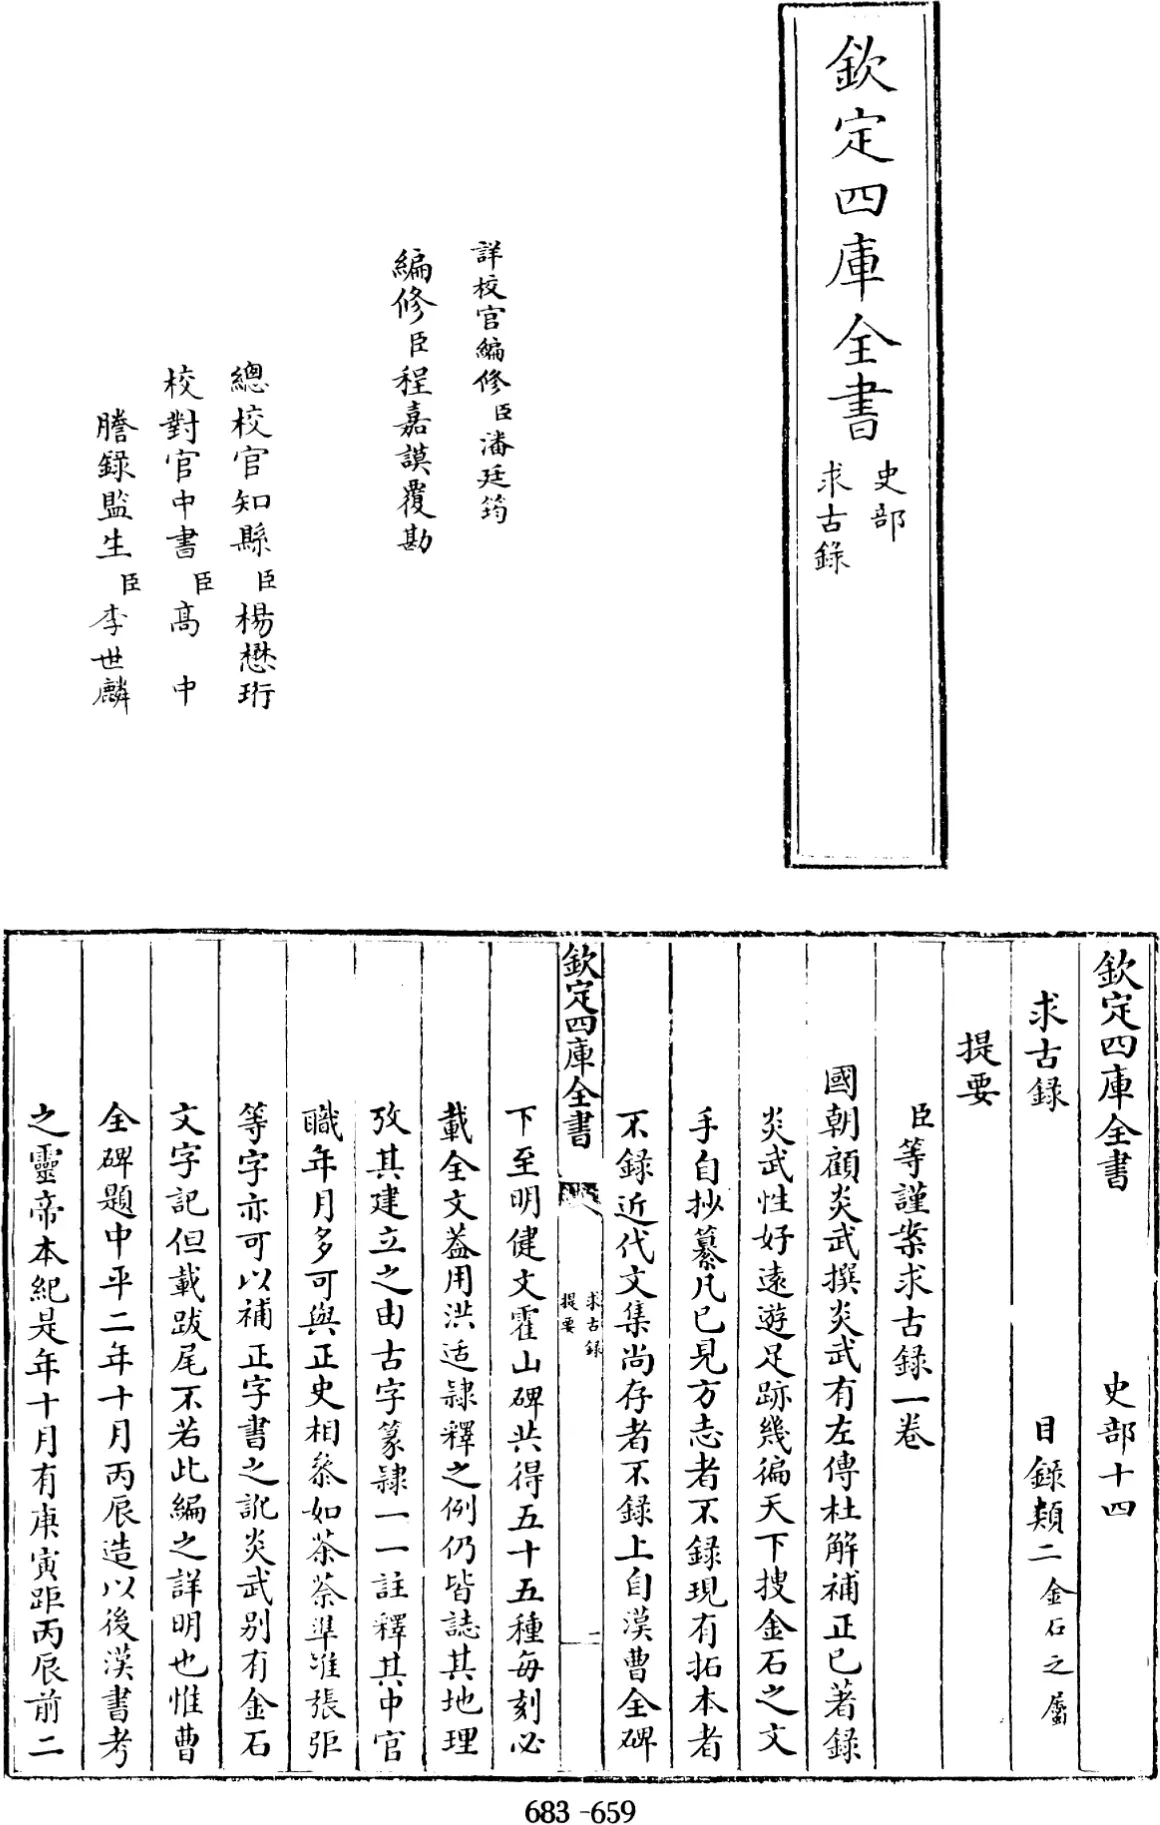 欽定四庫全書
史部
求古錄
詳校官編修臣潘廷筠
編修臣程嘉謨覆勘
總校官知縣臣楊懋珩
校對官中書臣高中
謄錄監生臣李世麟
欽定四庫全書
史部十四
求古録
目錄類二金石之屬
提要
臣等謹案求古録一卷
國朝顧炎武撰炎武有左傳杜解補正已著録
炎武性好遠遊足跡幾徧天下搜金石之文
手自抄纂凡已見方志者不録現有拓本者
不録近代文集尚存者不録上自漢曹全碑
欽定四庫全書
求古録
提要
一
下至明健文霍山碑共得五十五種每刻必
載全文葢用洪适隷釋之例仍皆誌其地理
攷其建立之由古字篆隷一一註釋其中官
職年月多可與正史相叅如茶荼準准張弡
等字亦可以補正字書之訛炎武别有金石
文字記但載跋尾不若此編之詳明也惟曹
全碑題中平二年十月丙辰造以後漢書考
之靈帝本紀是年十月有庚寅距丙辰前二
683-659